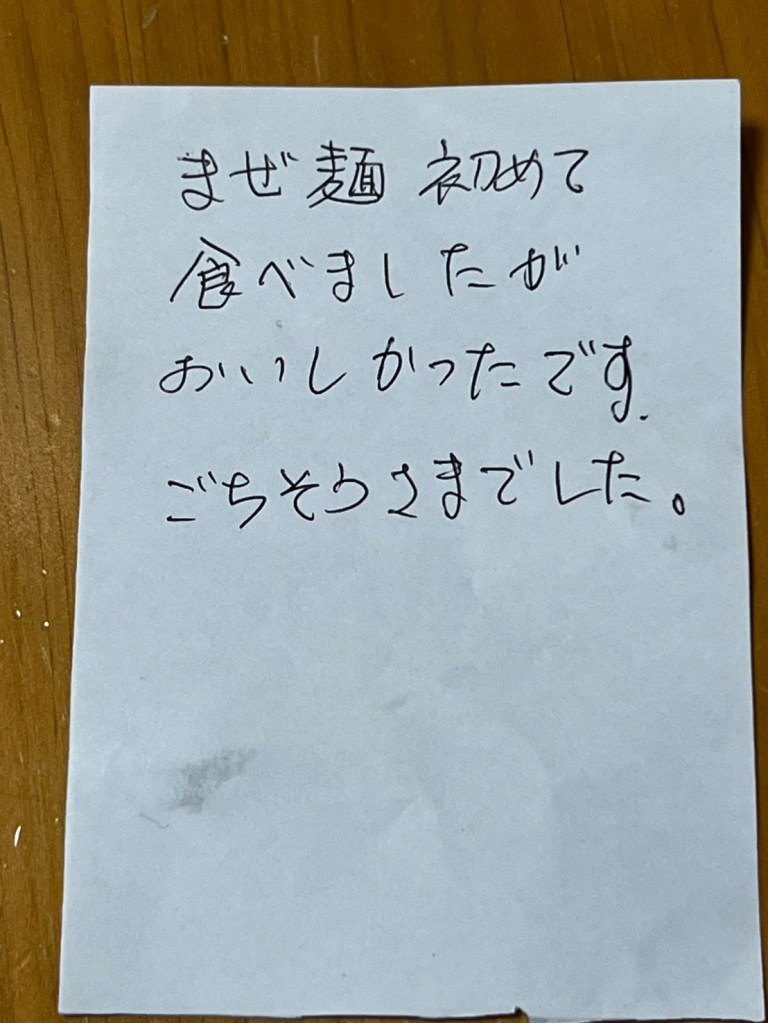 まぜ麺 初めて
食べましたが
おいしかったです.
ごちそうさまでした。